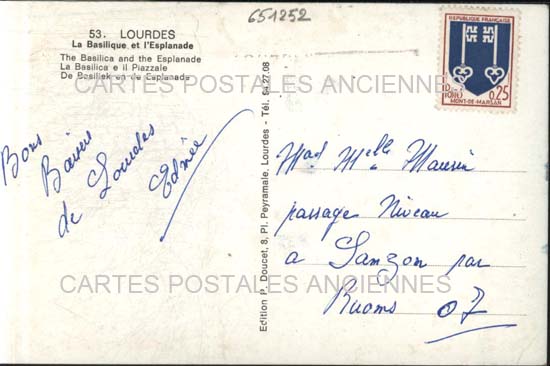 651252
53. LOURDES
La Basilique et l'Esplanade
The Basilica and the Esplanade
La Basilica e il Piazzale
De Basiliek en de Esplanade
REPUBLIQUE FRANÇAISE
0,25
MONT-DE-MARSAN
CARTES POSTALES ANCIENNES
Bons
Baisers
de Lourdes
Edmée
Edition P. Doucet, 8, Pl. Peyramale, Lourdes - Tél. 94.27.08
Melle
passage Niveau
a Sanzon par
Ruoms 07
CARTES POSTALES ANCIENNES